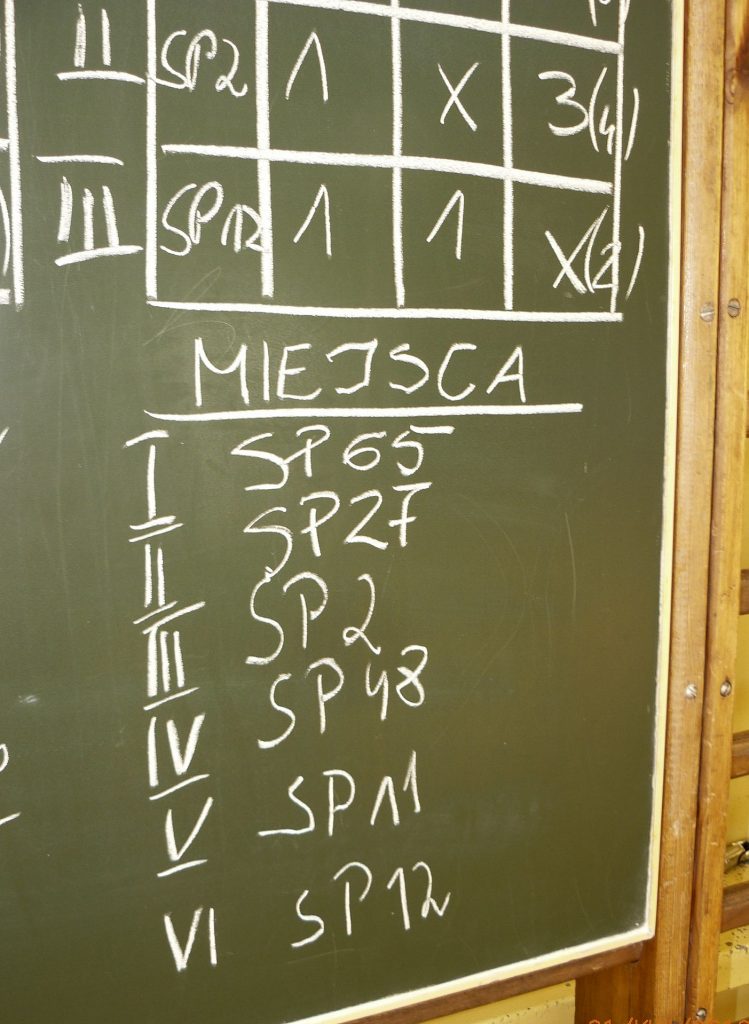 II SP2 1 X 3(4)
III SP12 1 1 X(2)
MIEJSCA
I SP65
II SP27
III SP2
IV SP48
V SP11
VI SP12